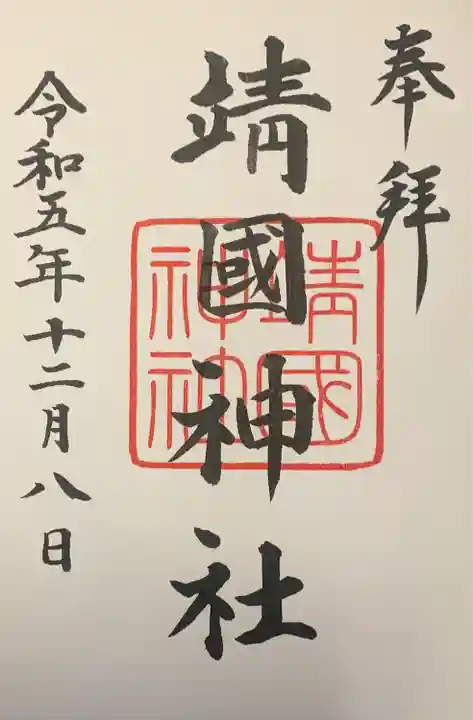 奉拝
靖國神社
靖國神社
令和五年十二月八日